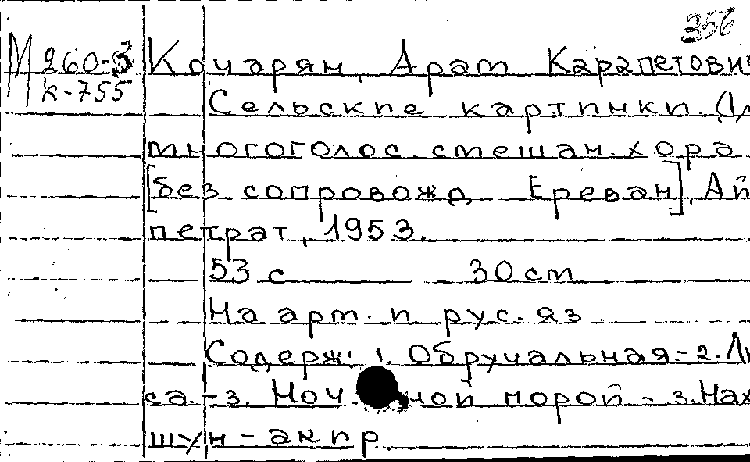 356
М 260-3 Кочарян, Арат Карапетович
К-755 Сельские картинки. (Дл
многоголос. смешан. хора
[без сопровожд Ереван], Ай
петрат, 1953.
53 с 30 см
На арт. и рус. яз
Содерж: 1. Обручальная.-2.
са.-3. Ноч ной порой - 3. Нах
шун-акпр